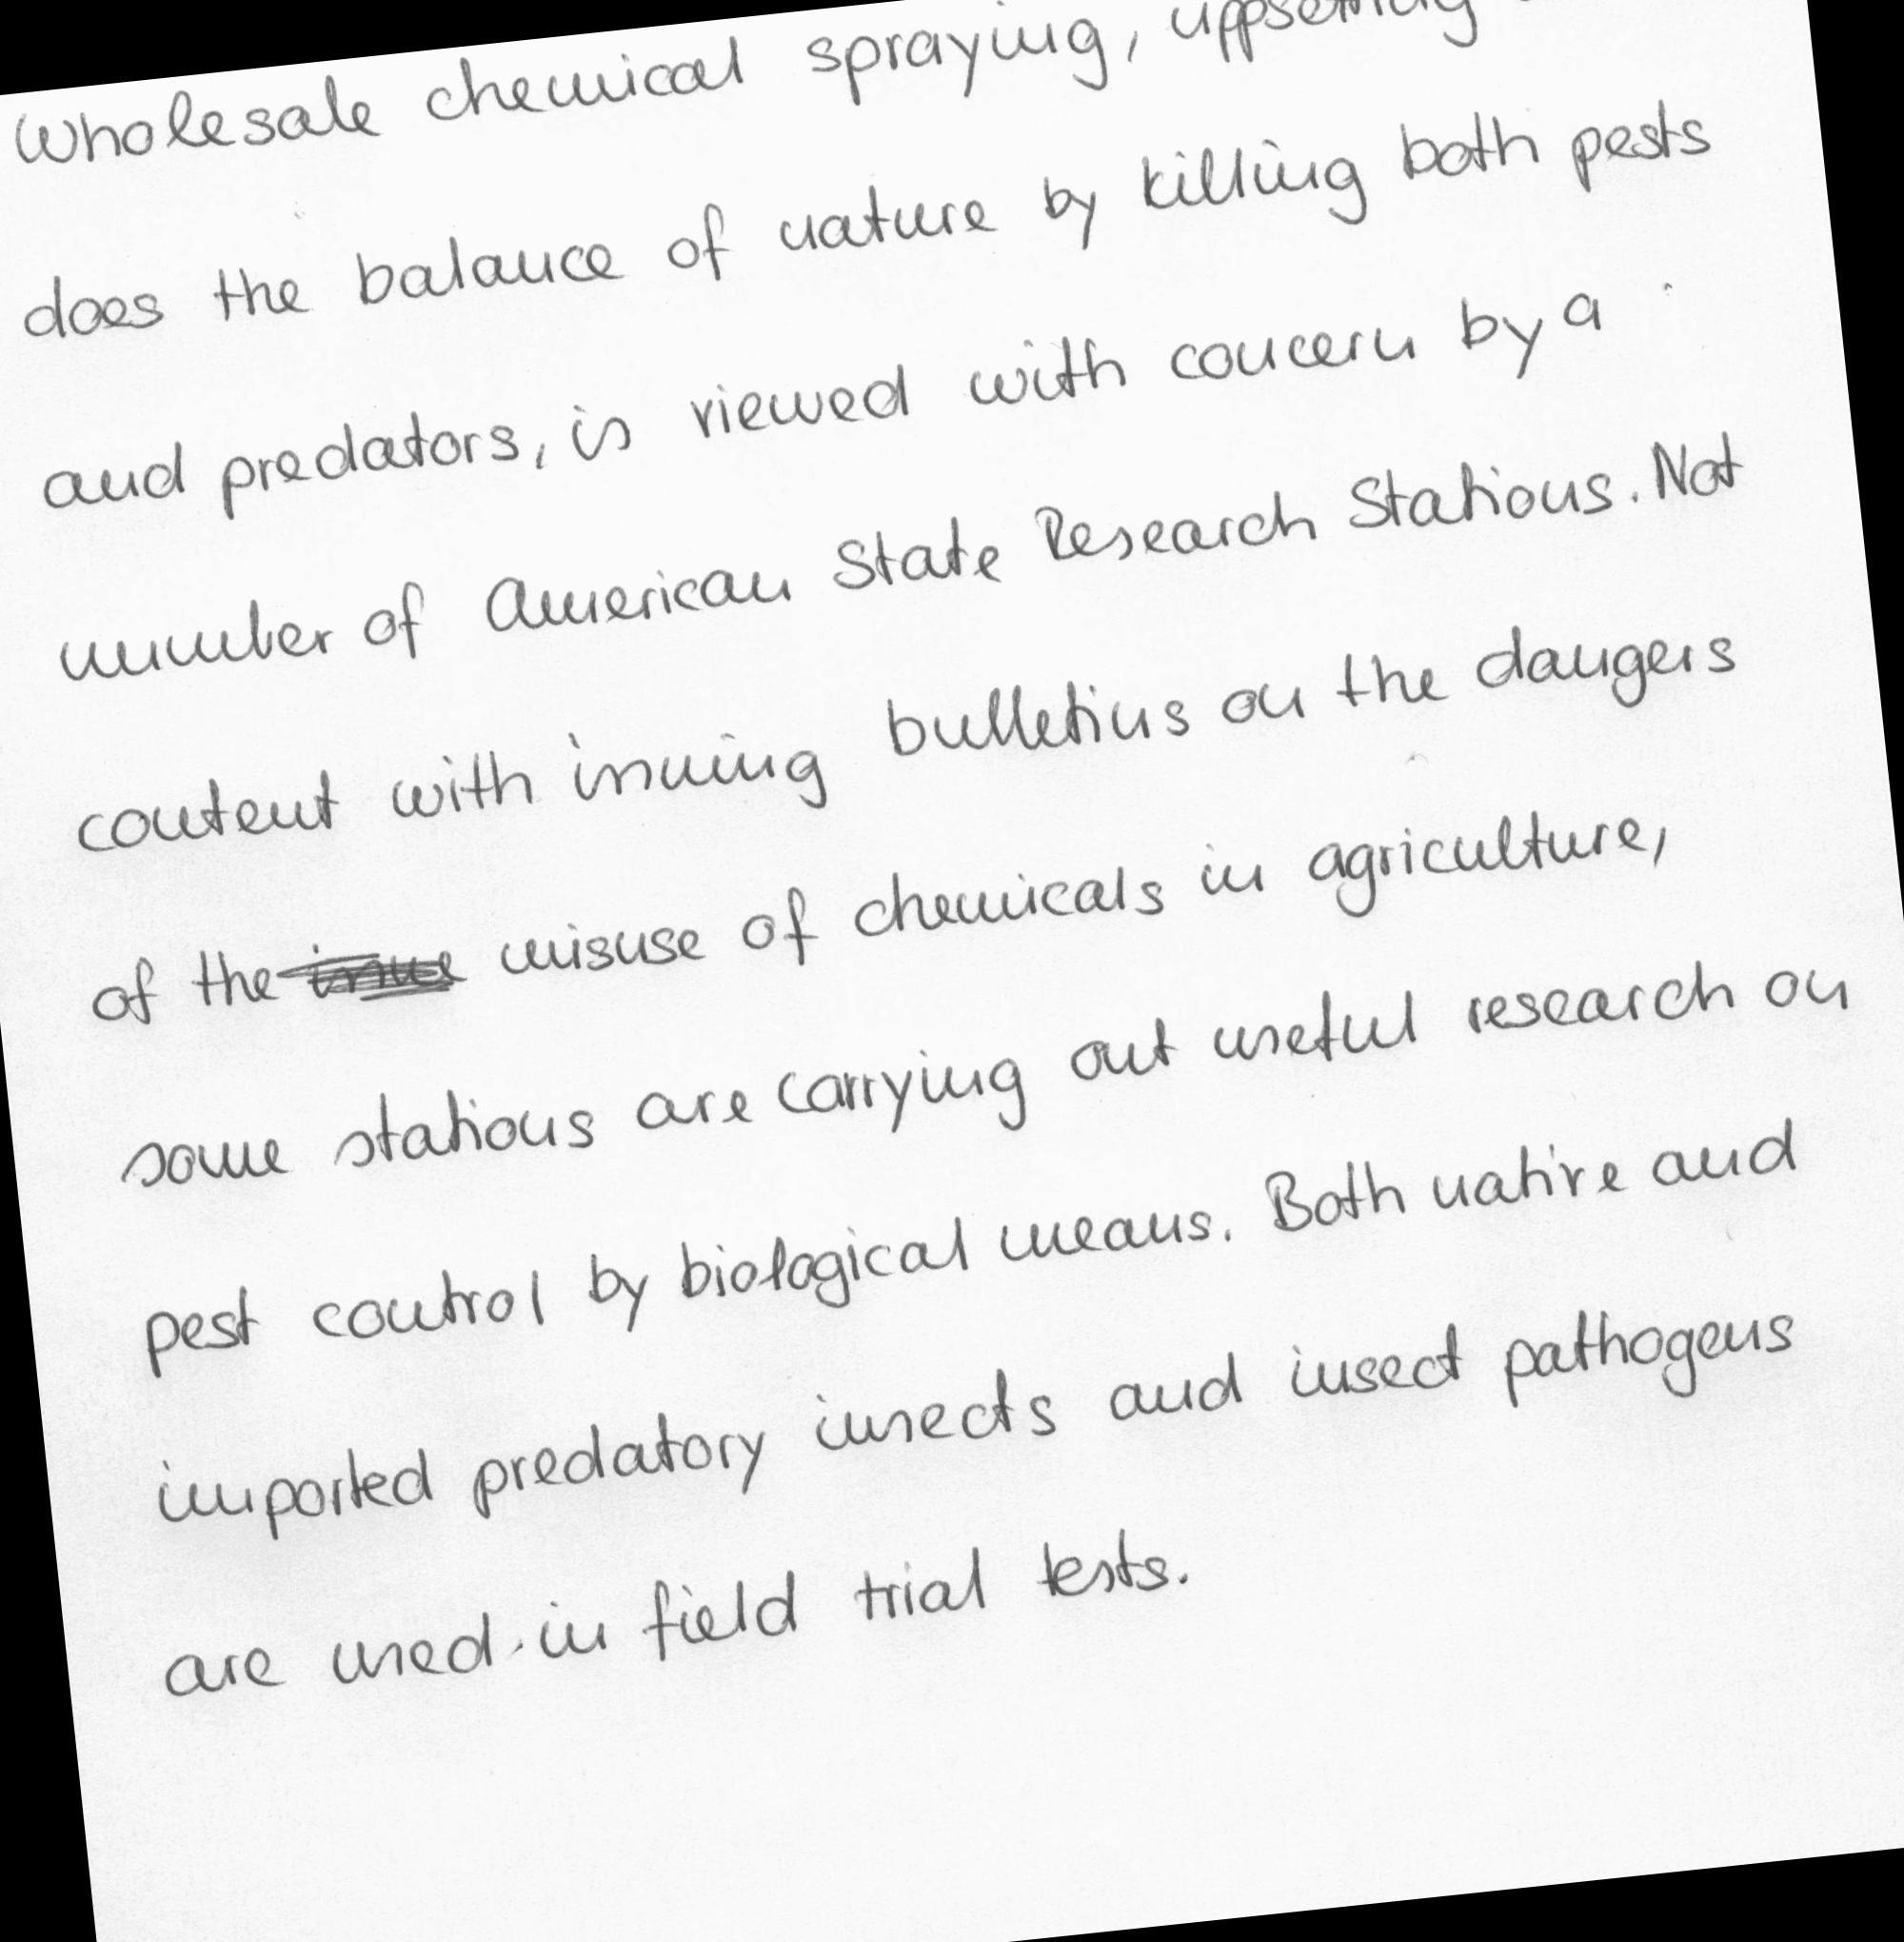 Wholesale chemical spraying, uppsetting
does the balance of nature by killing both pests
and predators, is viewed with concern by a
number of American State Research Stations. Not
content with issuing bulletins on the dangers
of the misuse of chemicals in agriculture,
some stations are carrying out useful research on
pest control by biological means. Both native and
imported predatory insects and insect pathogens
are used in field trial tests.